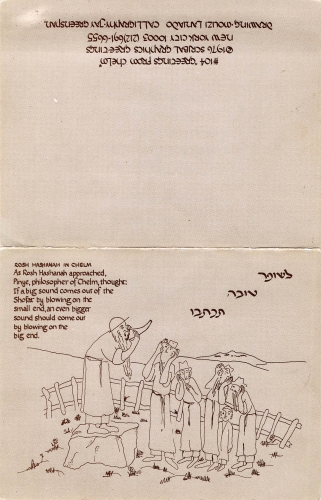 #104 "GREETINGS FROM CHELM"
©1976 SCRIBAL GRAPHICS GREETINGS
NEW YORK CITY 10003 (212) 691-6655
DRAWING-MOUZI LANDAU CALLIGRAPHY-JAY GREENSPAN
ROSH HASHANAH IN CHELM
As Rosh Hashanah approached,
Pinye, philosopher of Chelm, thought:
If a big sound comes out of the
Shofar by blowing on the
small end, an even bigger
sound should come out
by blowing on the
big end.
לשנה
טובה
תכתבו